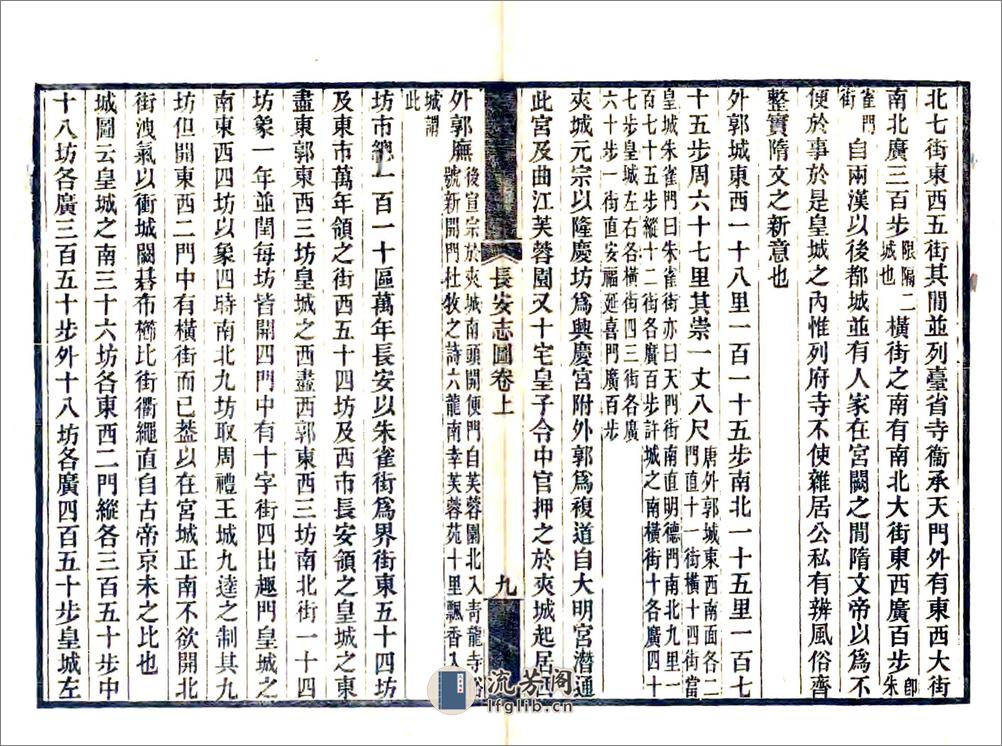 北七街東西五街其間並列臺省寺衞承天門外有東西大街
南北廣三百步限隔二城也橫街之南有南北大街東西廣百步即朱
雀門街自兩漢以後都城並有人家在宮闕之間隋文帝以爲不
便於事於是皇城之內惟列府寺不使雜居公私有辨風俗齊
整實隋文之新意也
外郭城東西一十八里一百一十五步南北一十五里一百七
十五步周六十七里其崇一丈八尺唐外郭城東西南面各二門直十一街橫十四街當
皇城朱雀門曰朱雀街亦曰天門街南直明德門南北九里一
百七十五步縱十二街各廣百步許城之南橫街十各廣四十
七步皇城左右各橫街四三街各廣
六十步一街直安福延喜門廣百步
夾城元宗以隆慶坊爲興慶宮附外郭爲複道自大明宮潛通
此宮及曲江芙蓉園又十宅皇子令中官押之於夾城起居
長安志圖卷上
九
外郭廡後宣宗於夾城南頭開便門自芙蓉園北入靑龍寺俗號新開門杜牧之詩六龍南幸芙蓉苑十里飄香入
城謂此
坊市總一百一十區萬年長安以朱雀街爲界街東五十四坊
及東市萬年領之街西五十四坊及西市長安領之皇城之東
盡東郭東西三坊皇城之西盡西郭東西三坊南北街一十四
坊象一年並閏每坊皆開四門中有十字街四出趣門皇城之
南東西四坊以象四時南北九坊取周禮王城九逵之制其九
坊但開東西二門中有橫街而已葢以在宮城正南不欲開北
街洩氣以衝城闕碁布櫛比街衢繩直自古帝京未之比也
城圖云皇城之南三十六坊各東西二門縱各三百五十步中
十八坊各廣三百五十步外十八坊各廣四百五十步皇城左
流芳阁
lfglib.cn